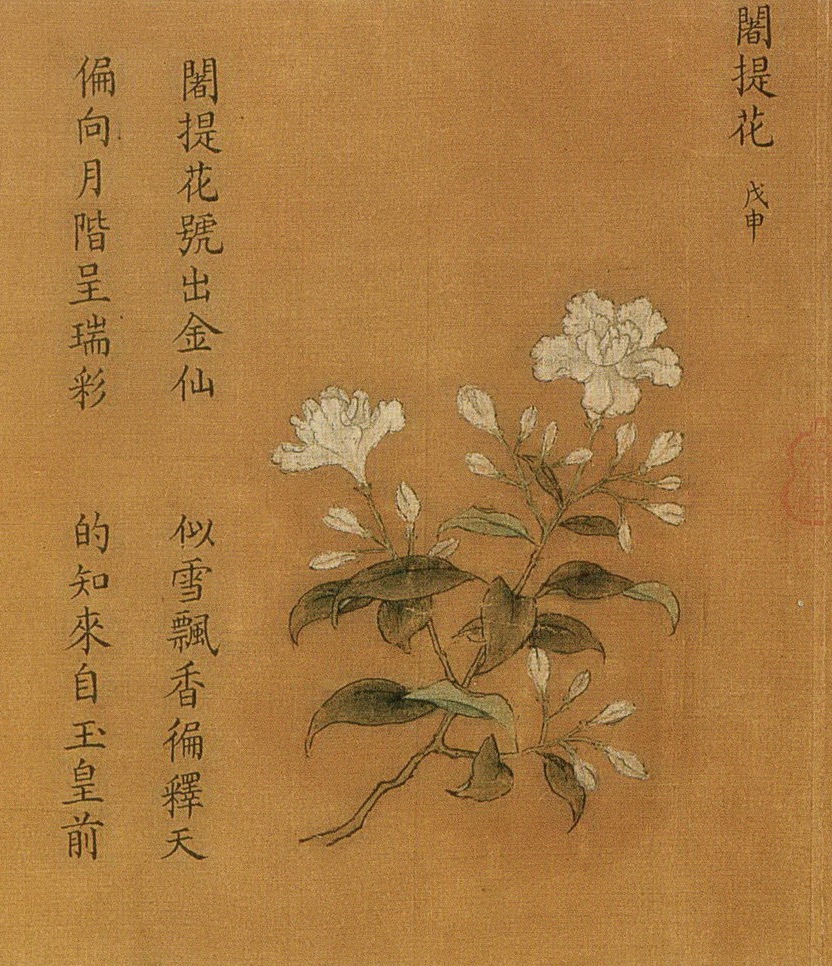 闍提花 戊申
闍提花號出金仙 似雪飄香徧釋天
偏向月階呈瑞彩 的知來自玉皇前